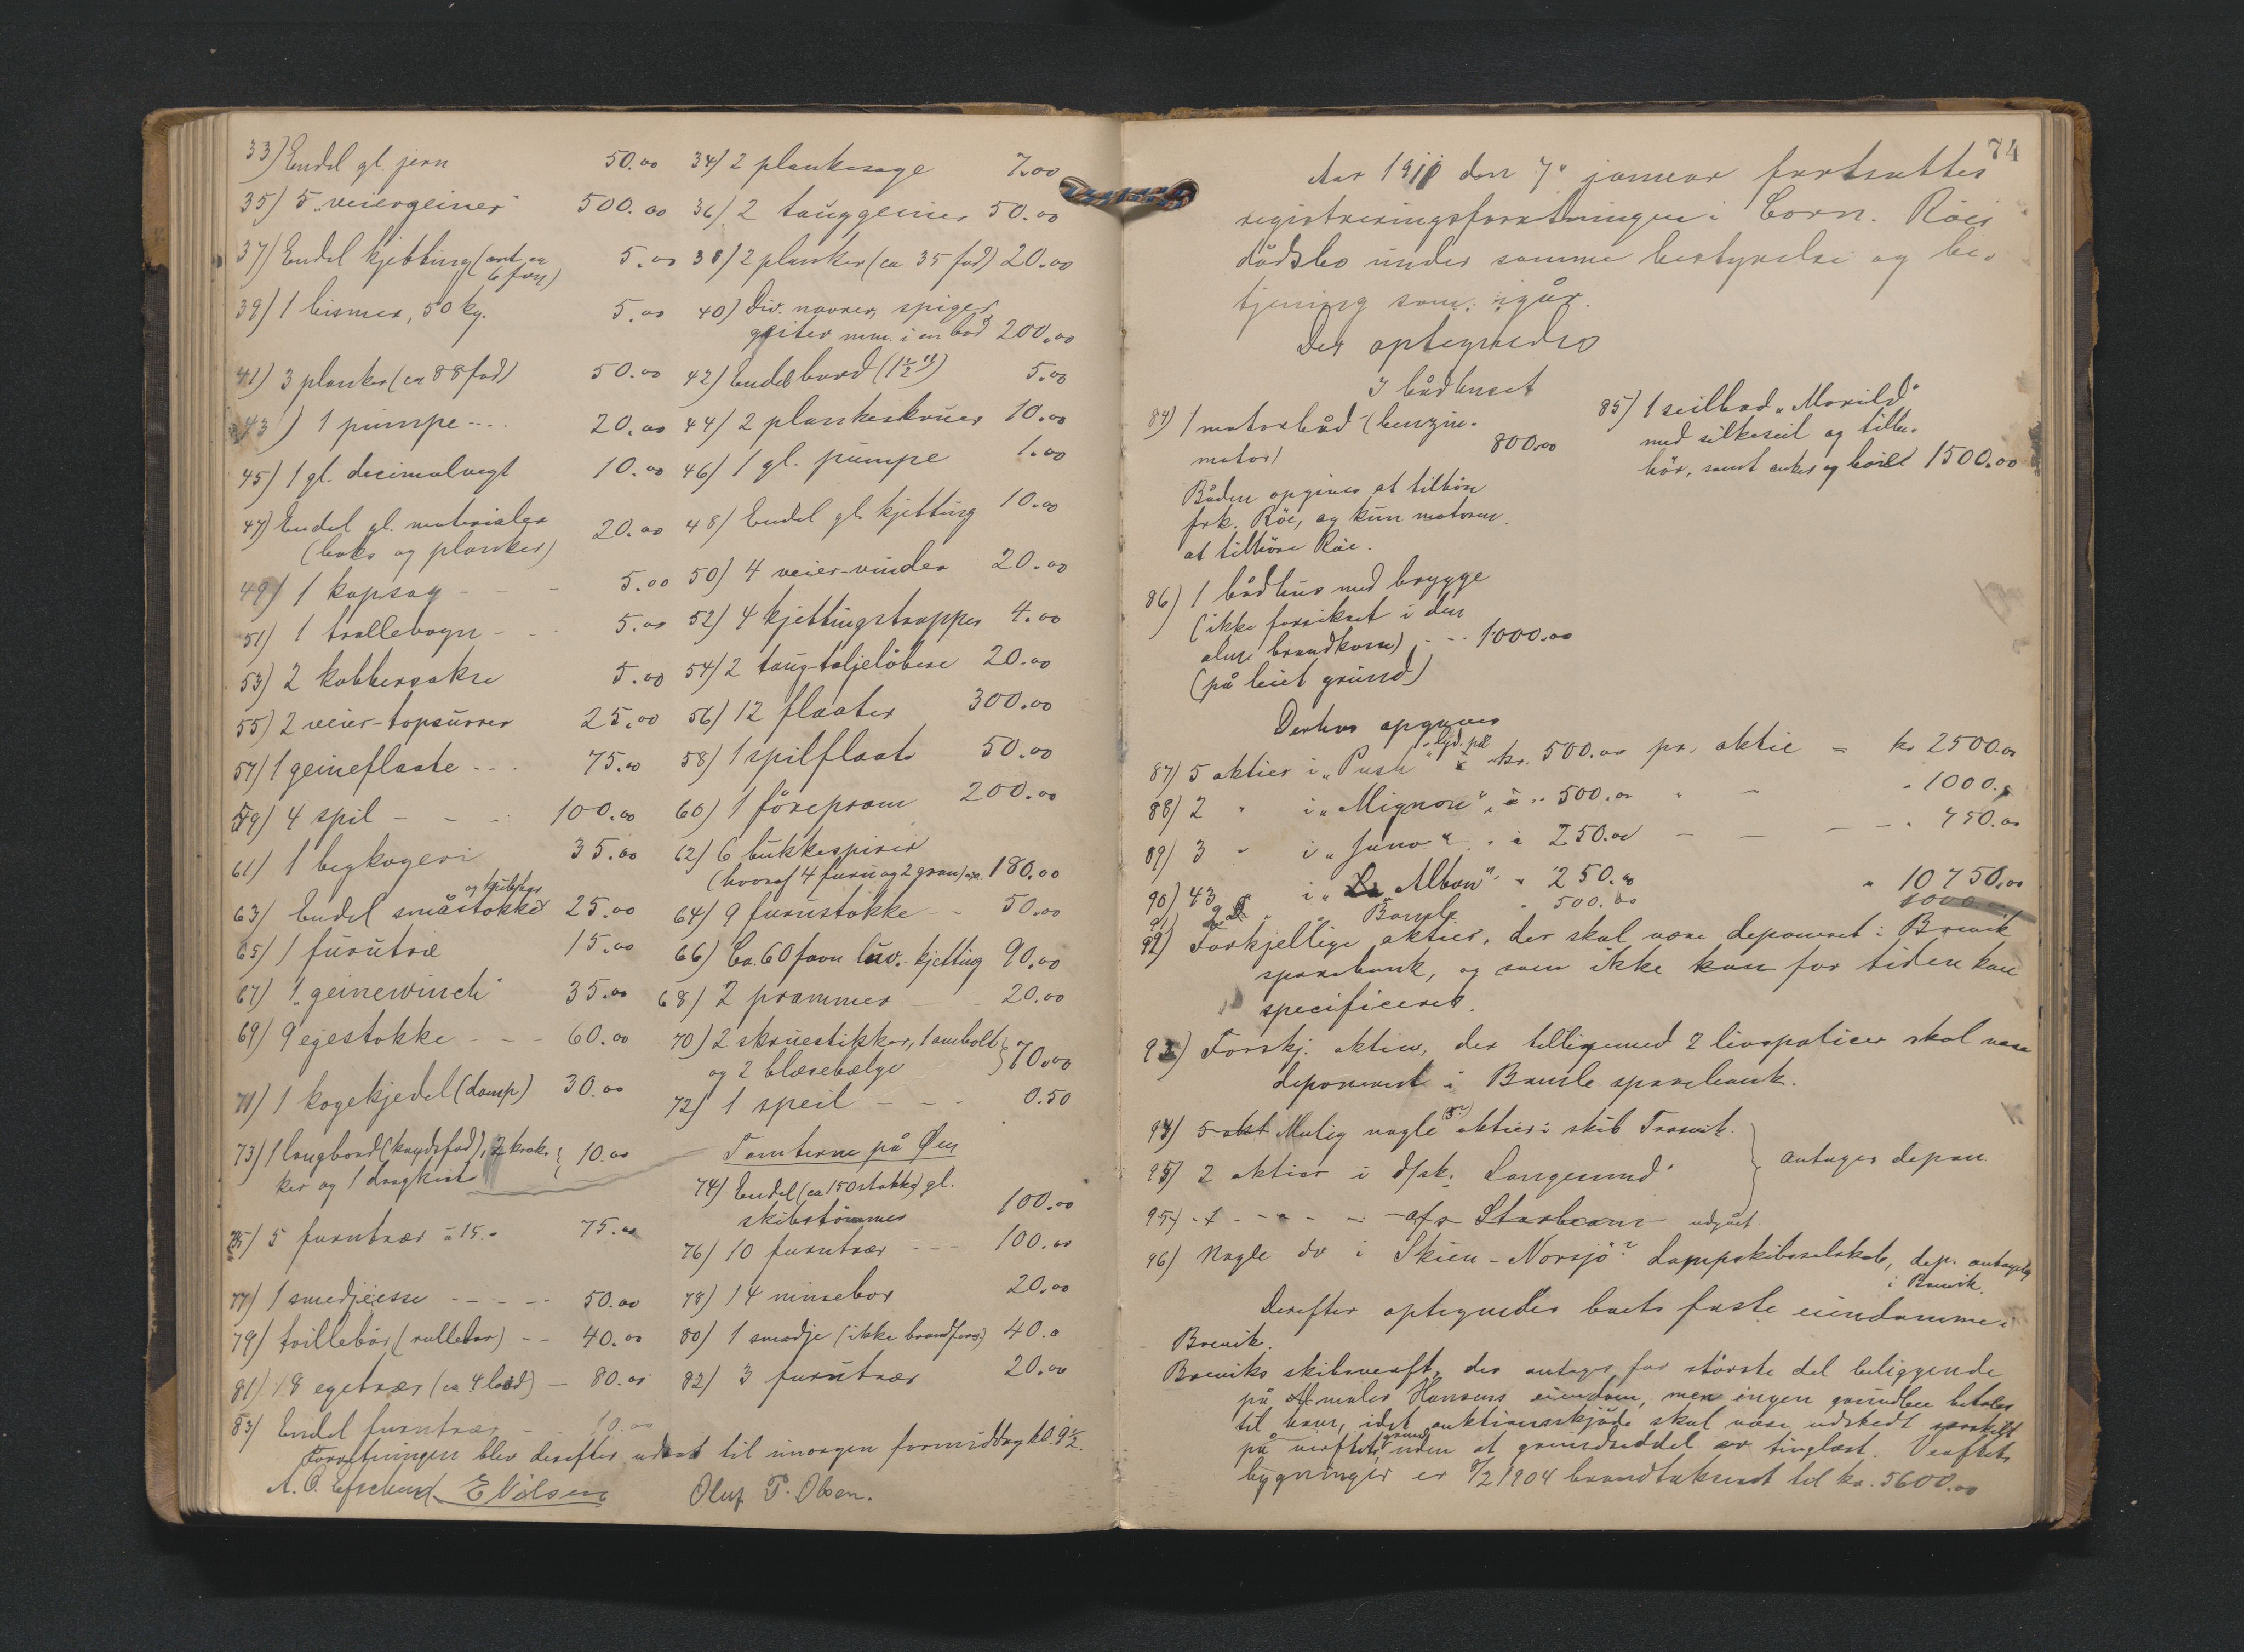 33) Endel gl. jern 50.00 34) 2 plankesage 7.00
35) 5 "veiergeiner" 500.00 36) 2 tauggeiner 50.00
37) Endel kjetting (ant. ca 6 favn) 5.00 38) 2 planker (ca 35 fod) 20.00
39) 1 bismer, 50 kg. 5.00 40) Div. navrer, spiger,
mm. i en bod 200.00
41) 3 planker (ca 88 fod) 50.00 42) Endel bord (1½") 5.00
43) 1 pumpe 20.00 44) 2 plankeskruer 10.00
45) 1 gl. decimalvegt 10.00 46) 1 gl. pumpe 1.00
47) Endel gl. materialer
(baks og planker) 20.00 48) Endel gl. kjetting 10.00
49) 1 kapsag 5.00 50) 4 veier-vinder 20.00
51) 1 trallevogn 5.00 52) 4 kjettingstropper 4.00
53) 2 kobbersakse 5.00 54) 2 taug-taljeløbere 20.00
55) 2 veier-topsurrer 25.00 56) 12 flaater 300.00
57) 1 geineflaate 75.00 58) 1 spilflaate 50.00
59) 4 spil 100.00 60) 1 førepram 200.00
61) 1 begkogeri 35.00 62) 6 bukkespirer
(hvoraf 4 furu og 2 gran) 180.00
63) Endel småstokke 25.00 64) 9 furustokke 50.00
65) 1 furutræ 15.00 66) Ca. 60 favn kjetting 90.00
67) 1 "geinewinch" 35.00 68) 2 prammer 20.00
69) 9 egestokke 60.00 70) 2 skruestikker, 1 ambolt
og 2 blæsebælge 70.00
71) 1 kogekjedel (damp) 30.00 72) 1 speil 0.50
73) 1 langbord (krydsfod), 2 krak-
ker og 1 dragkiste 10.00
Tomterne på Øen
74) Endel (ca 150 stokke) gl.
skibstømmer 100.00
75) 5 furutrær à 15.- 75.00
76) 10 furutrær 100.00
77) 1 smedjeesse 50.00 78) 14 minsebor 20.00
79) trillebør (rullebør) 40.00 80) 1 smedje (ikke brandfors.) 40.0
81) 18 egetrær (ca 4 læd) 80.00 82) 3 furutrær 20.00
83) Endel furutrær 10.00
Forretningen blev derefter udsat til imorgen formiddag kl. 9½.
E Nilsen Oluf T. Olsen.
74
Aar 1911 den 7de januar fortsattes
registreringsforretningen i Corn. Röes
dödsbo under samme bestyrelse og be-
tjening som igår.
Der optegnedes
I bådhuset
84) 1 motorbåd (benzin-
motor) 800.00
Båden opgives at tilhøre
frk. Röe, og kun motoren
at tilhöre Röe.
85) 1 seilbaad "Morild"
med silkeseil og tilbe-
hör, samt anker og 1500.00
86) 1 bådhus med brygge
(ikke forsikret i den
alm. brandkasse) 1000.00
(på leiet grund)
Derhos opgives
87) 5 aktier i "Push" lyd. på kr. 500.00 pr. aktie = kr 2500.00
88) 2 " i "Mignon" à " 500.00 " 1000.
89) 3 " i "Juno" à 250.00 " 750.00
90) 43 " i "Albon" " 250.00 " 10750.00
91) 2 " Bamle " 500.00 1000
92) Forkjellige aktier, der skal være deponeret i Brevik
sparebank, og som ikke kan for tiden kan
specificeres.
93) Forskj. aktier, der tilligemed 2 livspolicer skal være
deponeret i Bamle sparebank.
94) 5 akt Mulig nogle (5?) aktier i skib Trosvik.
95) 2 aktier i d/sk. Langesund" antages depon
95) 1 - - - - a/s Starbeam udgået
96) Nogle do i Skien-Norsjö? Dampskibsselskab, dep. antagelig
i Brevik.
Derefter optegnedes boets faste eiendomme i
Brevik.
Breviks skibsverft, der antages for störste del beliggende
på maler Hansens eiendom, men ingen grundleie betales
til ham, idet auktionsskjöde skal være udstedt særskilt
på verftets grund, uden at grundseddel er tinglæst. Verftets
bygninger er 8/2 1904 brandtakseret til kr. 5600.00